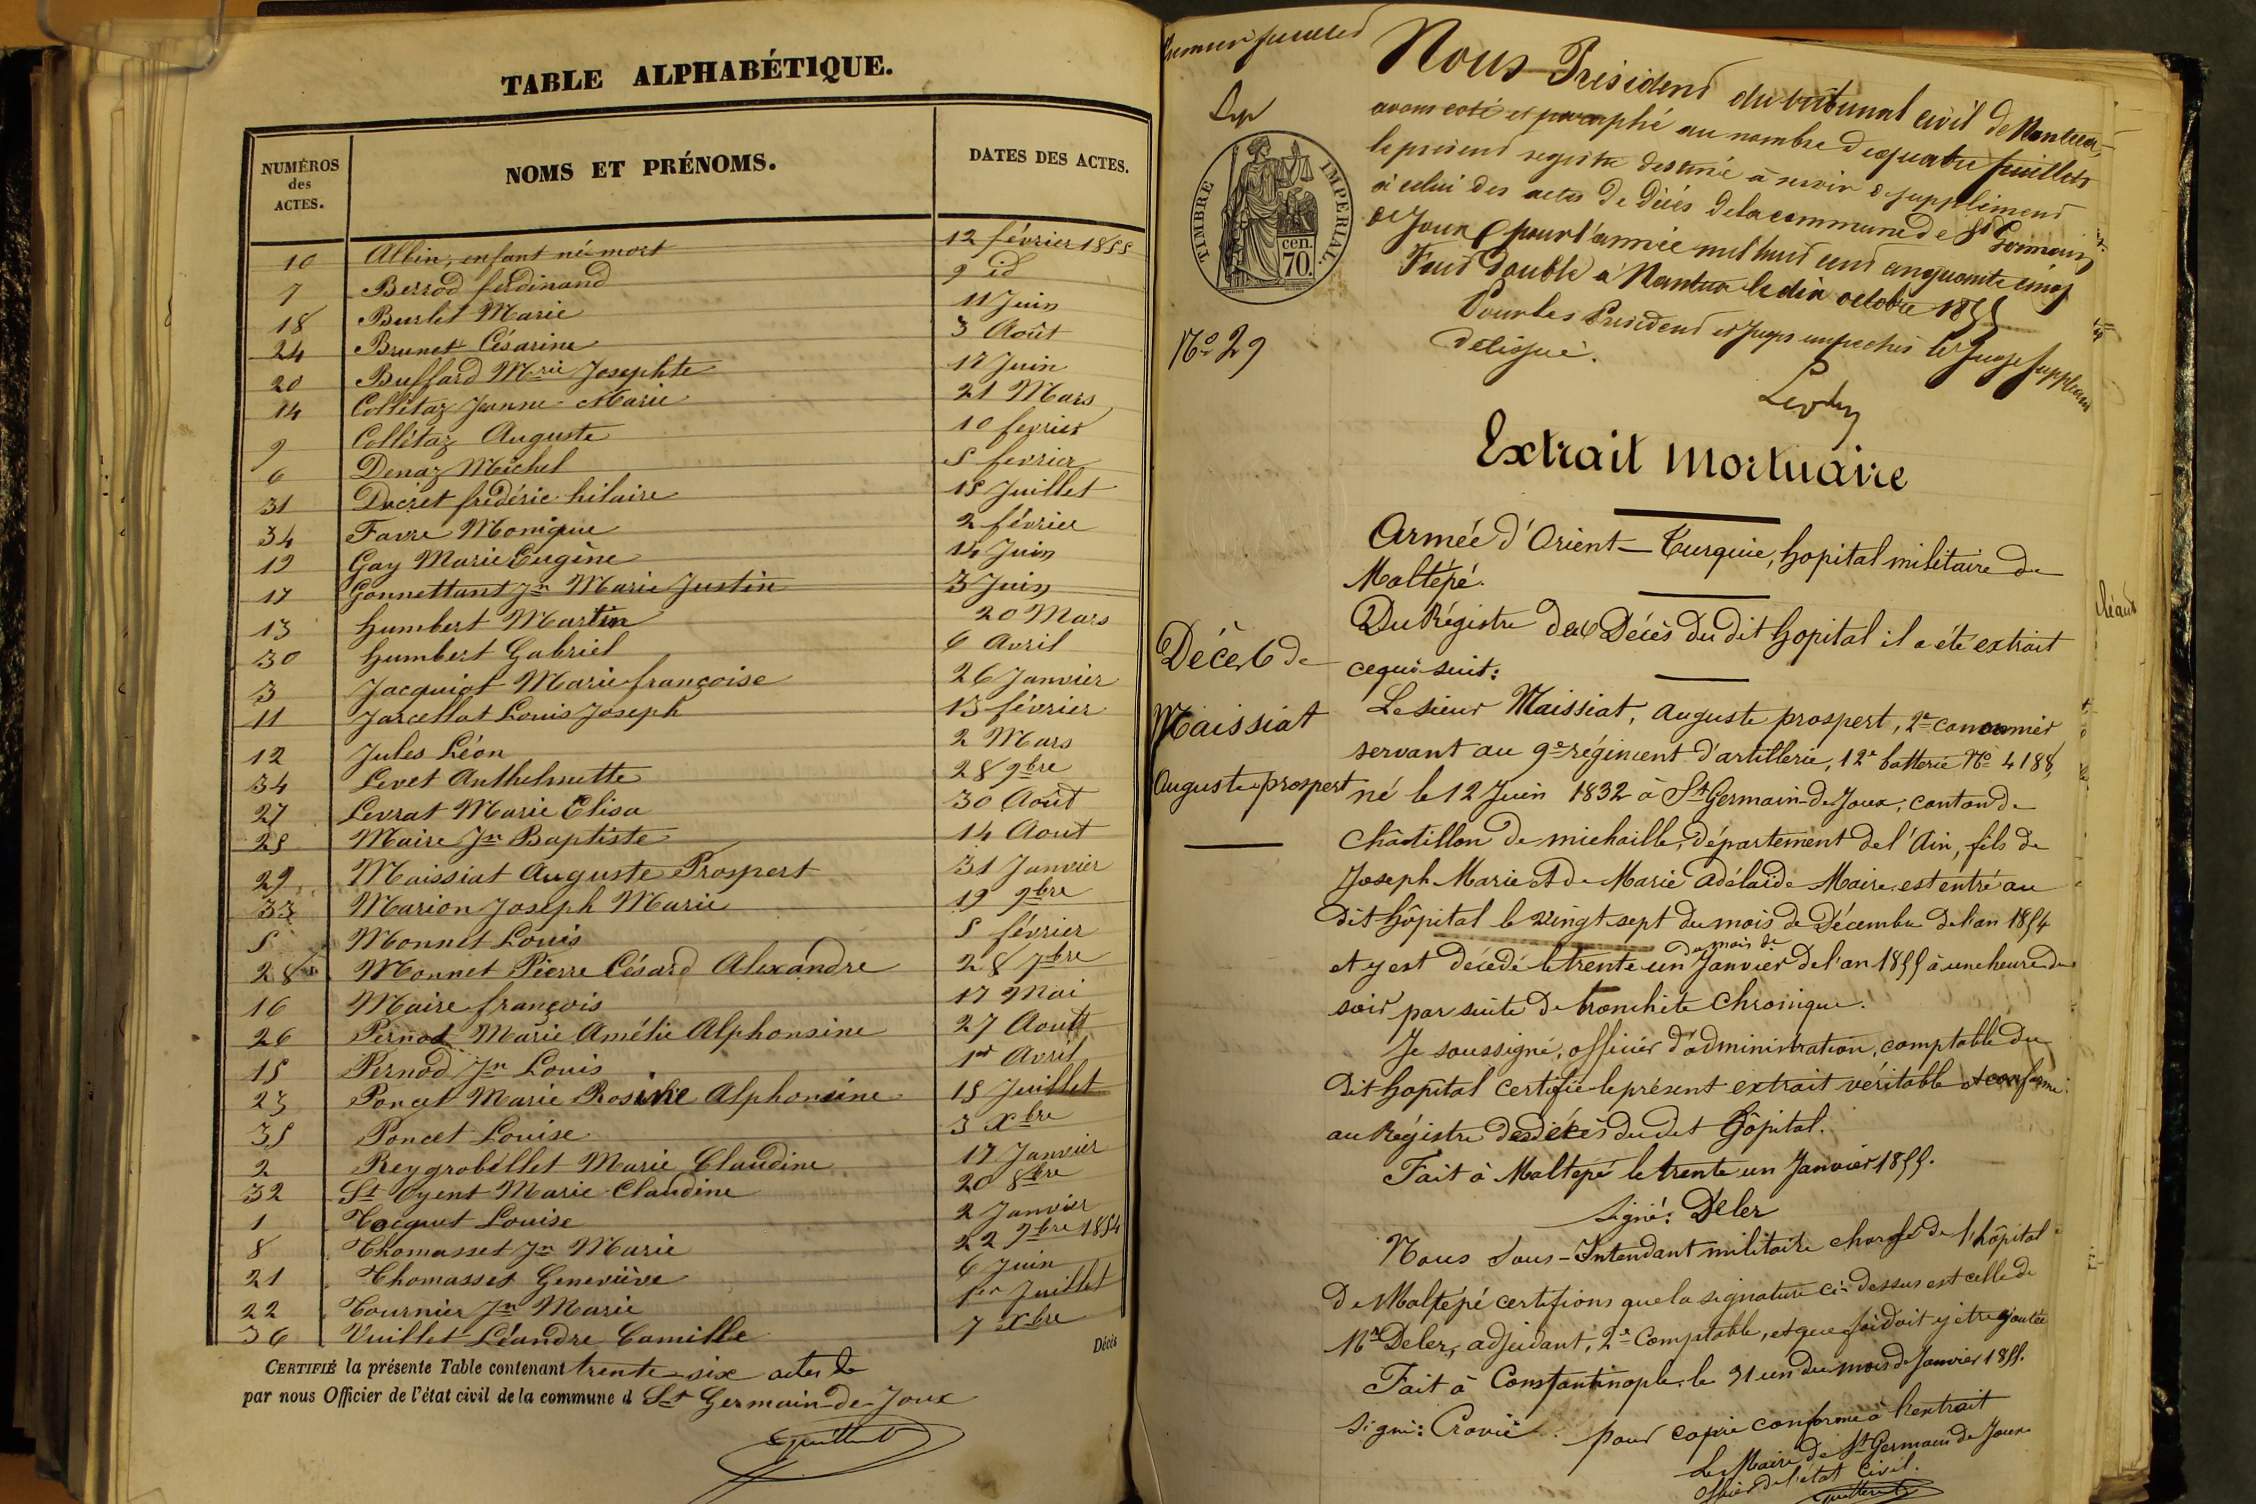 TABLE ALPHABÉTIQUE.
NUMÉROS des ACTES. NOMS ET PRÉNOMS. DATES DES ACTES.
10 Albin, enfant né-mort 12 février 1855
7 Berrod ferdinand 9 id
18 Burlet Marie 11 Juin
24 Brunet Césarine 3 Août
20 Buffard Marie Josephte 17 Juin
14 Collétaz Jeanne-Marie 21 Mars
9 Collétaz Auguste 10 fevrier
6 Denaz Michel 5 fevrier
31 Ducret frédéric hilaire 15 Juillet
34 Favre Monique 2 février
19 Gay Marie Eugène 14 Juin
17 Gonnettant Jn Marie Justin 3 Juin
13 humbert Martin 20 Mars
30 humbert Gabriel 6 Avril
3 Jacquiot Marie françoise 26 Janvier
11 Jarcellat Louis Joseph 13 février
12 Jules Léon 2 Mars
34 Levet Anthelmette 28 9bre
27 Levrat Marie Elisa 30 Août
25 Maire Jn Baptiste 14 Aout
29 Maissiat Auguste Prospert 31 Janvier
33 Marion Joseph Marie 19 9bre
5 Monnet Louis 5 février
28 Monnet Pierre Césard Alexandre 28 7bre
16 Maire françois 17 Mai
26 Pernod Marie Amélie Alphonsine 27 Août
15 Pernod Jn Louis 1er Avril
23 Poncet Marie Rosine Alphonsine 15 Juillet
35 Poncet Louise 3 Xbre
2 Reygrobellet Marie Claudine 17 Janvier
32 St Oyent Marie-Claudine 20 8bre
1 Tocquet Louise 2 Janvier
8 Thomasset Jn Marie 22 9bre 1854
21 Thomasset Geneviève 6 Juin
22 Tournier Jn Marie 1er Juillet
36 Vuillet Léandre Camille 7 Xbre
Décès
CERTIFIÉ la présente Table contenant trente-six actes
par nous Officier de l'état civil de la commune d St Germain-de-Joux
Premier feuillet
Nous Président du tribunal civil de Nantua,
avons coté et paraphé au nombre de quatre feuillets
le présent registre destiné à servir de supplément
à celui des actes de Décès de la commune de St Germain
de Joux pour l'année mil huit cent cinquante cinq
Fait double à Nantua le dix octobre 1855
Pour les Président et Juges empêchés le Juge suppléant
délégué.
TIMBRE IMPERIAL.
70 cen.
No 29
Extrait Mortuaire
Armée d'Orient – Turquie, hopital militaire de
Maltépé.
Du Régistre des Décès du dit hopital il a été extrait
ce qui suit:
Décès de
Maissiat
Auguste prospert
Le sieur Maissiat, Auguste prospert, 2e canonnier
servant au 9e régiment d'artillerie, 12e batterie No 4188,
né le 12 Juin 1832 à St Germain-de-Joux, canton de
Châtillon de michaille, département de l'Ain, fils de
Joseph Marie et de Marie Adélaïde Maire est entré au
dit hôpital le vingt sept du mois de Décembre de l'an 1854
et y est décédé le trente un du mois de Janvier de l'an 1855 à une heure du
soir par suite de bronchite Chronique.
Je soussigné, officier d'administration, comptable du
dit hopital certifie le présent extrait véritable et conforme
au Régistre des décès du dit hôpital.
Fait à Maltépé le trente un Janvier 1855.
Signé: Deler
Nous Sous-Intendant militaire chargé de l'hôpital
de Maltépé certifions que la signature ci-dessus est celle de
Mr Deler, adjudant, 2e Comptable, et que foi doit y être ajoutée
Fait à Constantinople le 31 un du mois de Janvier 1855.
Signé:
pour copie conforme à l'extrait
Le Maire de St Germain de Joux
officier de l'état Civil.